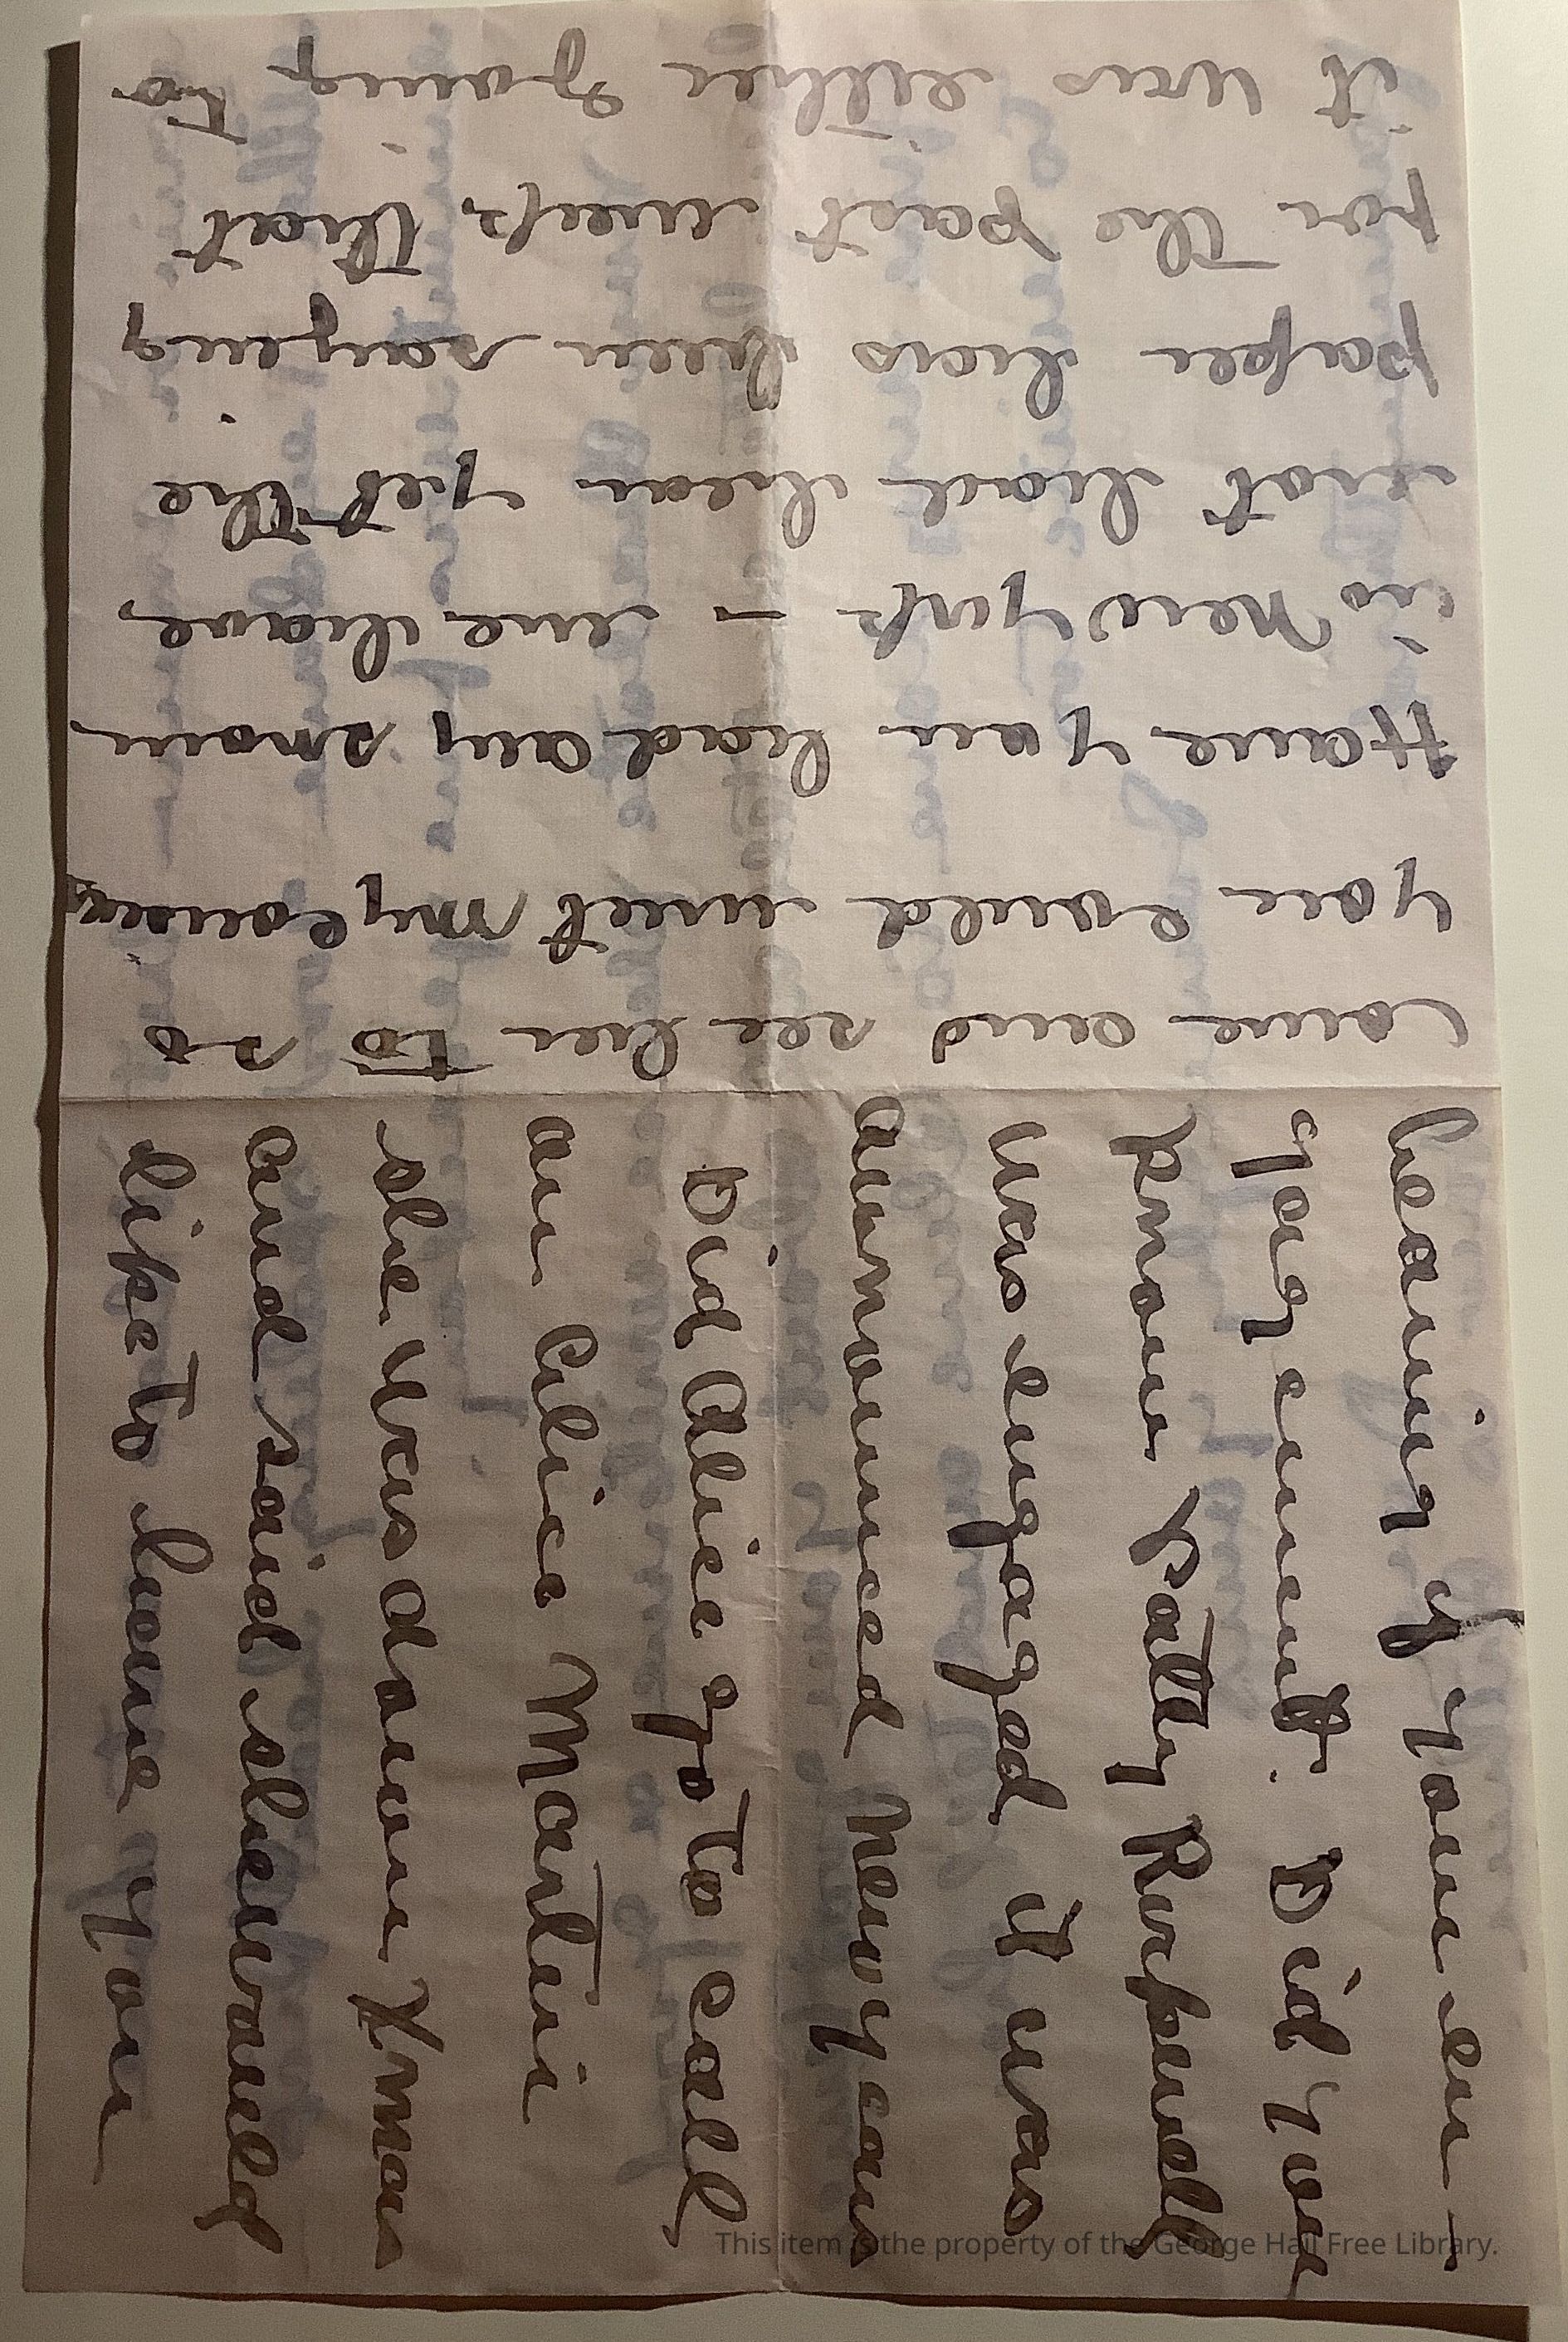 hearing of your en-
gagement. Did you
know Patty Rockwell
was engaged it was
announced New years
Did Alice go to call
on Alice Martin
she was down Xmas
and said she would
like to have you
come and see her to so
you could meet my cousin,
Have you had any snow
in New York - we have
not had hear yet the
paper has been saying
for the past week, that
it was either going to
This item is the property of the George Hail Free Library.